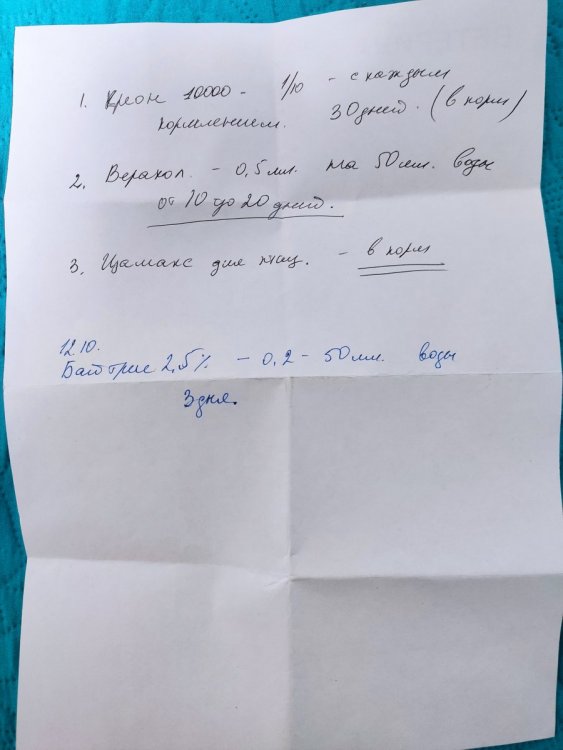 1. Креон 10000 - 1/10 - с каждым
кормлением. 30 дней. (в корм)
2. Веракол. - 0,5 мл. на 50 мл. воды
от 10 до 20 дней.
3. Цамакс для птиц. - в корм
12.10.
Байтрил 2,5% - 0,2 - 50 мл. воды
3 дня.